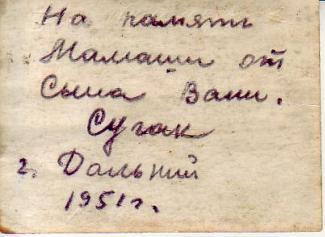 На память
Мамаши от
Сына Вани.
Сугак
г. Дальний
1951г.